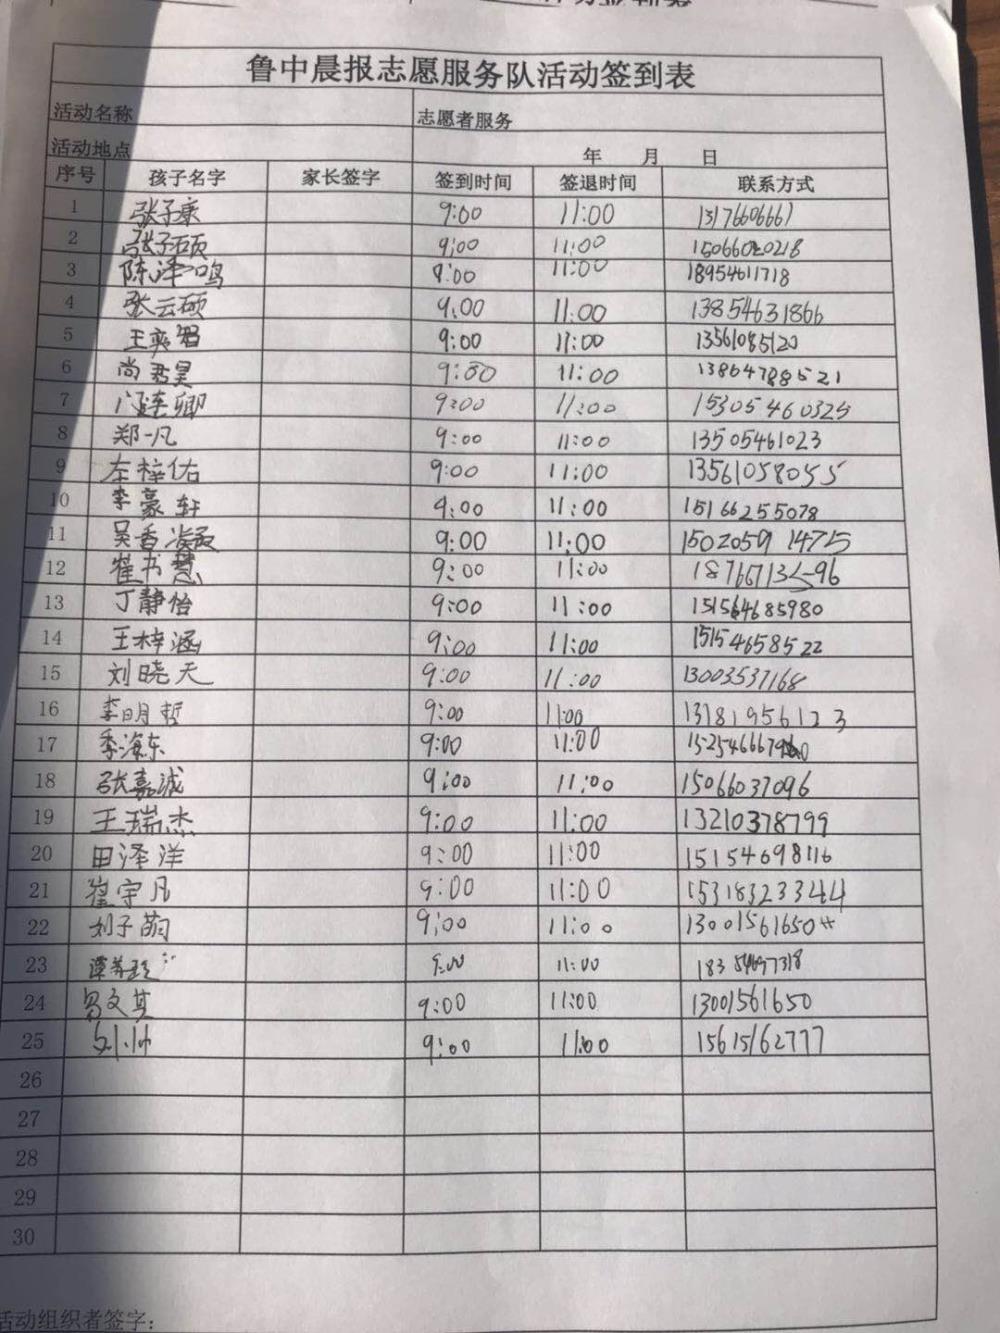 鲁中晨报志愿服务队活动签到表
活动名称 志愿者服务
活动地点 年 月 日
序号 孩子名字 家长签字 签到时间 签退时间 联系方式
1 张子康 9:00 11:00 13176606661
2 张子硕 9:00 11:00 15066020218
3 陈泽鸣 9:00 11:00 18954611718
4 张云硕 9:00 11:00 13854631866
5 王奕智 9:00 11:00 13561085120
6 尚君昊 9:00 11:00 13864788521
7 9:00 11:00 15305460325
8 郑一凡 9:00 11:00 13505461023
9 左梓佑 9:00 11:00 13561058055
10 李豪轩 9:00 11:00 15166255078
11 吴香凝 9:00 11:00 1502059 14715
12 崔书慧 9:00 11:00 18766713596
13 丁静怡 9:00 11:00 151564685980
14 王梓涵 9:00 11:00 15154658522
15 刘晓天 9:00 11:00 13003537168
16 李明哲 9:00 11:00 13181956123
17 季海东 9:00 11:00
18 张嘉诚 9:00 11:00 15066037096
19 王瑞杰 9:00 11:00 13210378799
20 田泽洋 9:00 11:00 15154698116
21 崔宇凡 9:00 11:00 15318323344
22 刘子萌 9:00 11:00 13001561650
23 9:00 11:00 18354697318
24 9:00 11:00 13001561650
25 刘帅 9:00 11:00 15615162777
26
27
28
29
30
活动组织者签字: